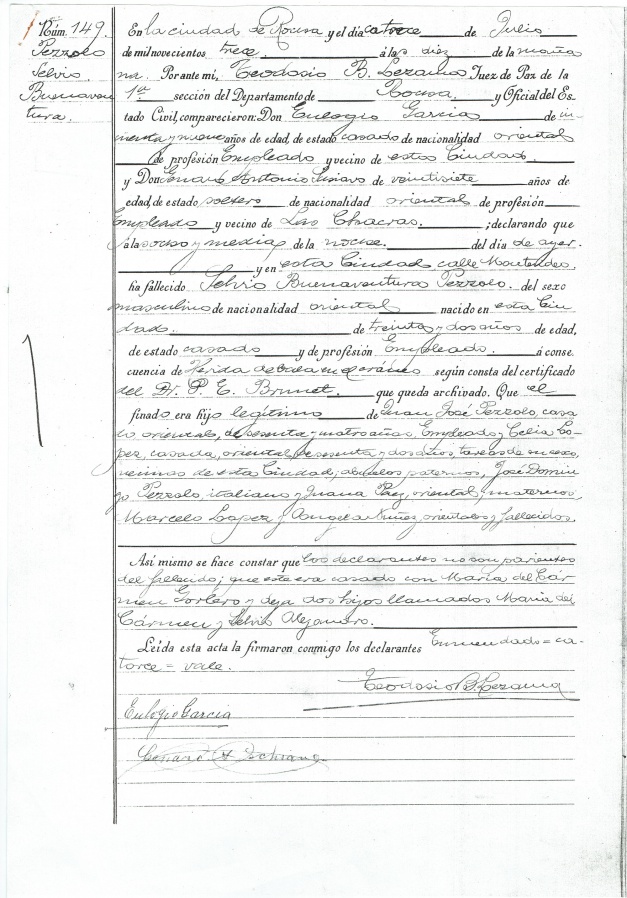 Núm. 149.
Pezzolo
Selvio
Buenaven
tura.
En la ciudad de Rocha y el día catorce de Julio
de mil novecientos trece, á las diez de la maña
na. Por ante mí, Teodosio B. Lezama Juez de Paz de la
1ª sección del Departamento de Rocha, y Oficial del Es-
tado Civil, comparecieron: Don Eulogio García de
y nueve años de edad, de estado casado de nacionalidad oriental
de profesión Empleado y vecino de esta Ciudad,
y Don Genaro Antonio de veintisiete años de
edad, de estado soltero de nacionalidad oriental de profesión
Empleado y vecino de Las Chacras. ; declarando que
á la y media de la noche. del día de ayer.
y en esta Ciudad calle Montevideo,
ha fallecido Selvio Buenaventura Pezzolo. del sexo
masculino de nacionalidad oriental nacido en esta Ciu
dad. de treinta y dos años de edad,
de estado casado y de profesión Empleado. á conse
cuencia de Herida de bala en el cráneo según consta del certificado
del Dr. P. E. Brunet. que queda archivado. Que el
finado era hijo legítimo de Juan José Pezzolo, casa
do, oriental, de sesenta y cuatro años, Empleado y Celia Ló-
pez, casada, oriental, de sesenta y dos años, labores de su sexo,
vecinos de esta Ciudad; abuelos paternos, José Domin
go Pezzolo, italiano y Juana Paz, oriental, maternos,
Marcelo Lopez y Angela Nuñez, orientales y fallecidos.
Así mismo se hace constar que los declarantes no son parientes
del fallecido; que este era casado con María del Cár-
men Gorlero y deja dos hijos llamados María del
Cármen y Selvio Alejandro.
Leída esta acta la firmaron conmigo los declarantes Enmendado = ca-
torce = vale.
Teodosio B. Lezama
Eulogio García
Genaro A.